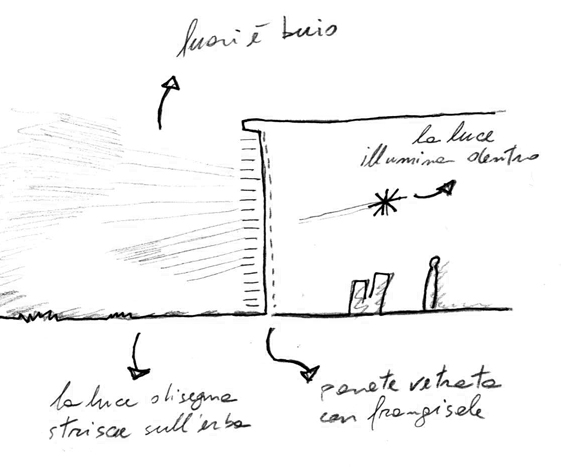 fuori è buio
la luce
illumina dentro
la luce disegna
strisce sull'erba
parete vetrata
con frangisole